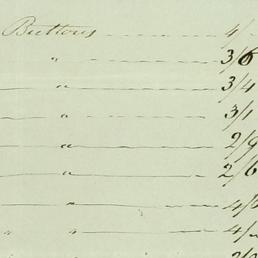 Buttons 4/-
" 3/6
" 3/4
" 3/1
" 2/9
" 2/6
" 4/6
" " 4/-